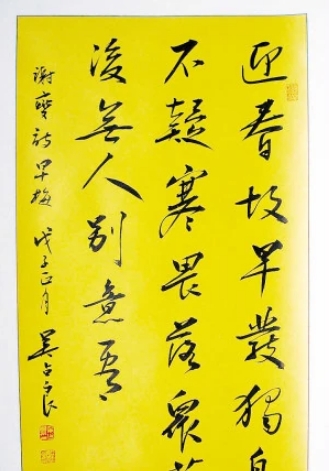 迎春故早發獨自
不疑寒畏落衆花
後無人别意看
謝燮詩早梅 戊子正月 吴占良